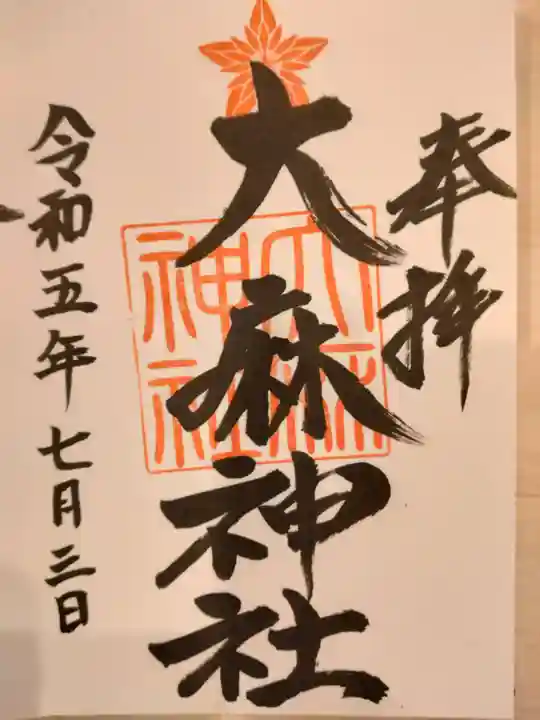 奉拝
大麻神社
大麻
神社
令和五年七月三日